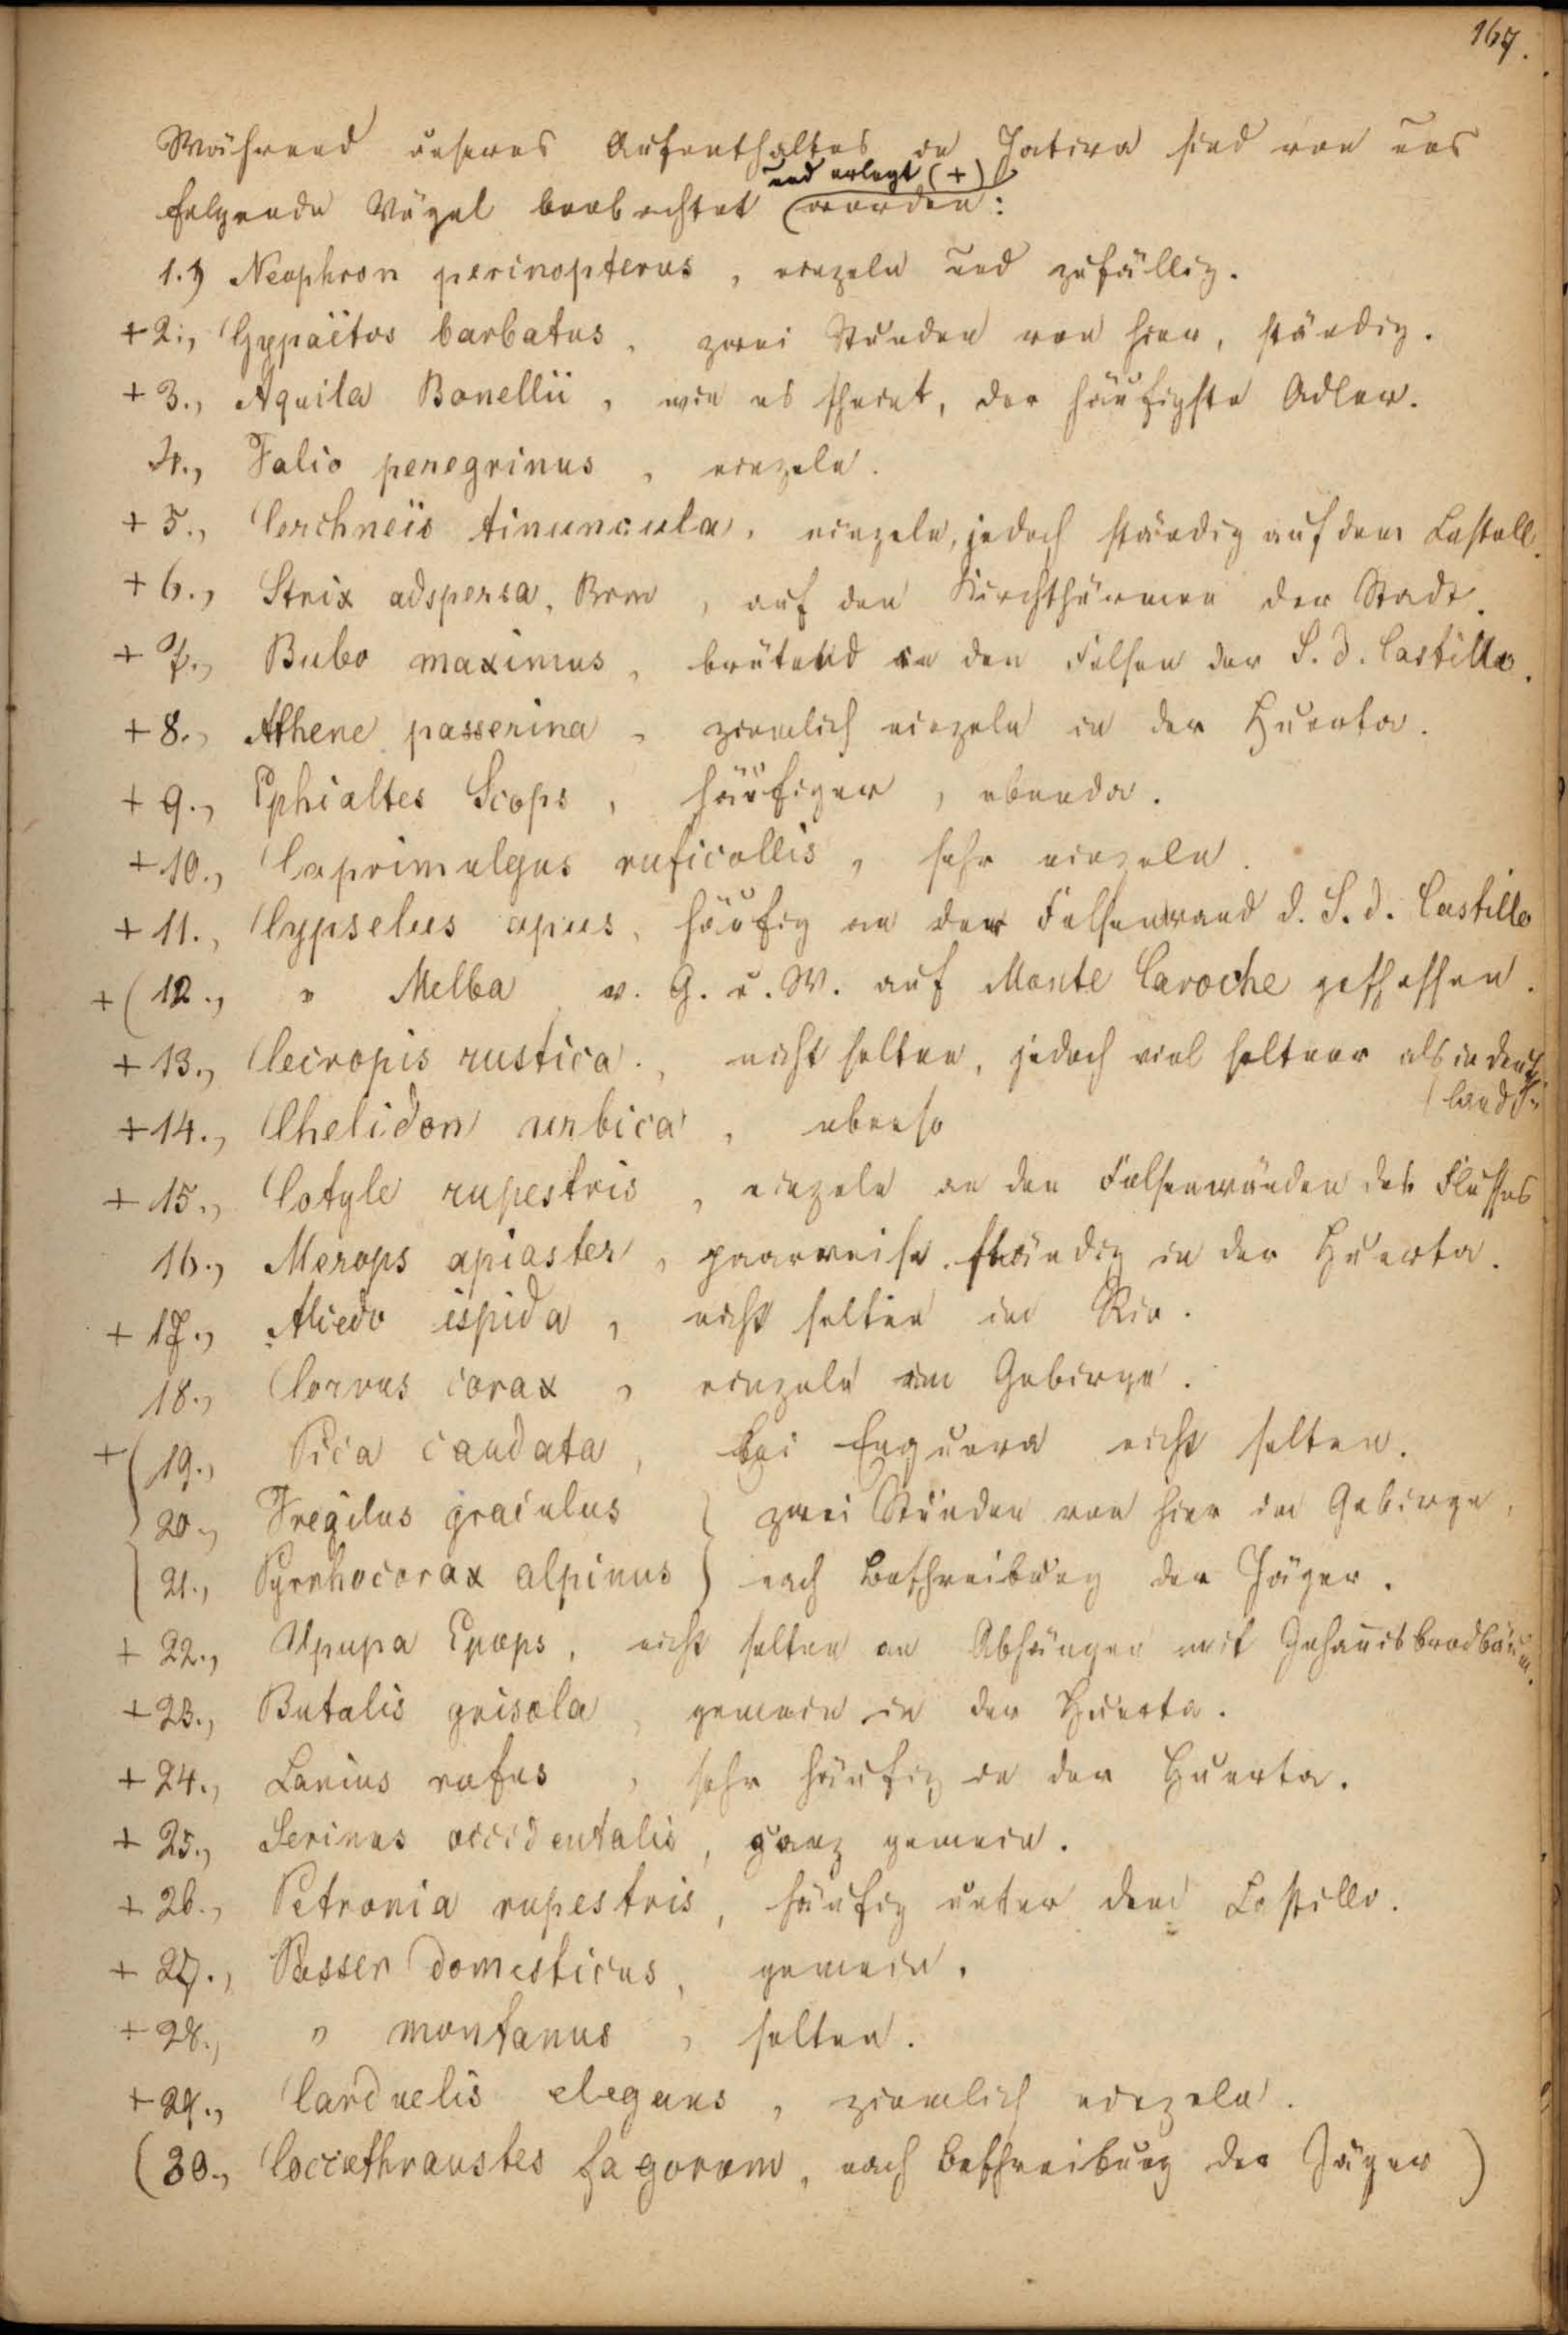 167.
Während unseres Aufenthaltes in Jativa sind von uns
und erlegt (+)
folgende Vögel beobachtet worden:
1.) Neophron perinopterus, einzeln und zufällig.
+ 2., Gypaëtos barbatus, zwei Stunden von hier, ständig.
+ 3., Aquila Bonellii, wie es scheint, der häufigste Adler.
4., Falco peregrinus, einzeln.
+ 5., Cerchneïs tinuncula, einzeln, jedoch ständig auf dem Castell.
+ 6., Strix adspersa, Brm, auf den Kirchthürmen der Stadt.
+ 7., Bubo maximus, brütend in den Felsen der S. d. Castillo.
+ 8., Athene passerina, ziemlich einzeln in der Huerta.
+ 9., Ephialtes Scops, häufiger, ebenda.
+ 10., Caprimulgus ruficollis, sehr einzeln.
+ 11., Cypselus apus, häufig an der Felsenwand d. S. d. Castillo
+ (12., " Melba v. G. u. W. auf Monte Caroche geschossen.
+ 13., Cecropis rustica., nicht selten, jedoch viel seltner als in Deutsch
(land.
+ 14., Chelidon urbica, ebenso
+ 15., Cotyle rupestris, einzeln an den Felsenwänden des Flusses
16., Merops apiaster, paarweise ständig in der Huerta.
+ 17., Alcedo ispida, nicht selten im Rio.
18., Corvus corax, einzeln im Gebirge.
+ (19., Pica caudata, bei Enguera nicht selten.
20., Fregilus graculus } zwei Stunden von hier im Gebirge,
21., Pyrrhocorax alpinus } nach Beschreibung der Jäger.
+ 22., Upupa Epops, nicht selten an Abhängen mit Johannisbrodbäum.
+ 23., Butalis grisola, gemein in der Huerta.
+ 24., Lanius rufus, sehr häufig in der Huerta.
+ 25., Serinus occidentalis, ganz gemein.
+ 26., Petronia rupestris, häufig unter dem Castillo.
+ 27., Passer domesticus, gemein.
+ 28., " montanus, selten.
+ 29., Carduelis elegans, ziemlich einzeln.
(30., Coccothraustes fagorum, nach Beschreibung der Jäger)